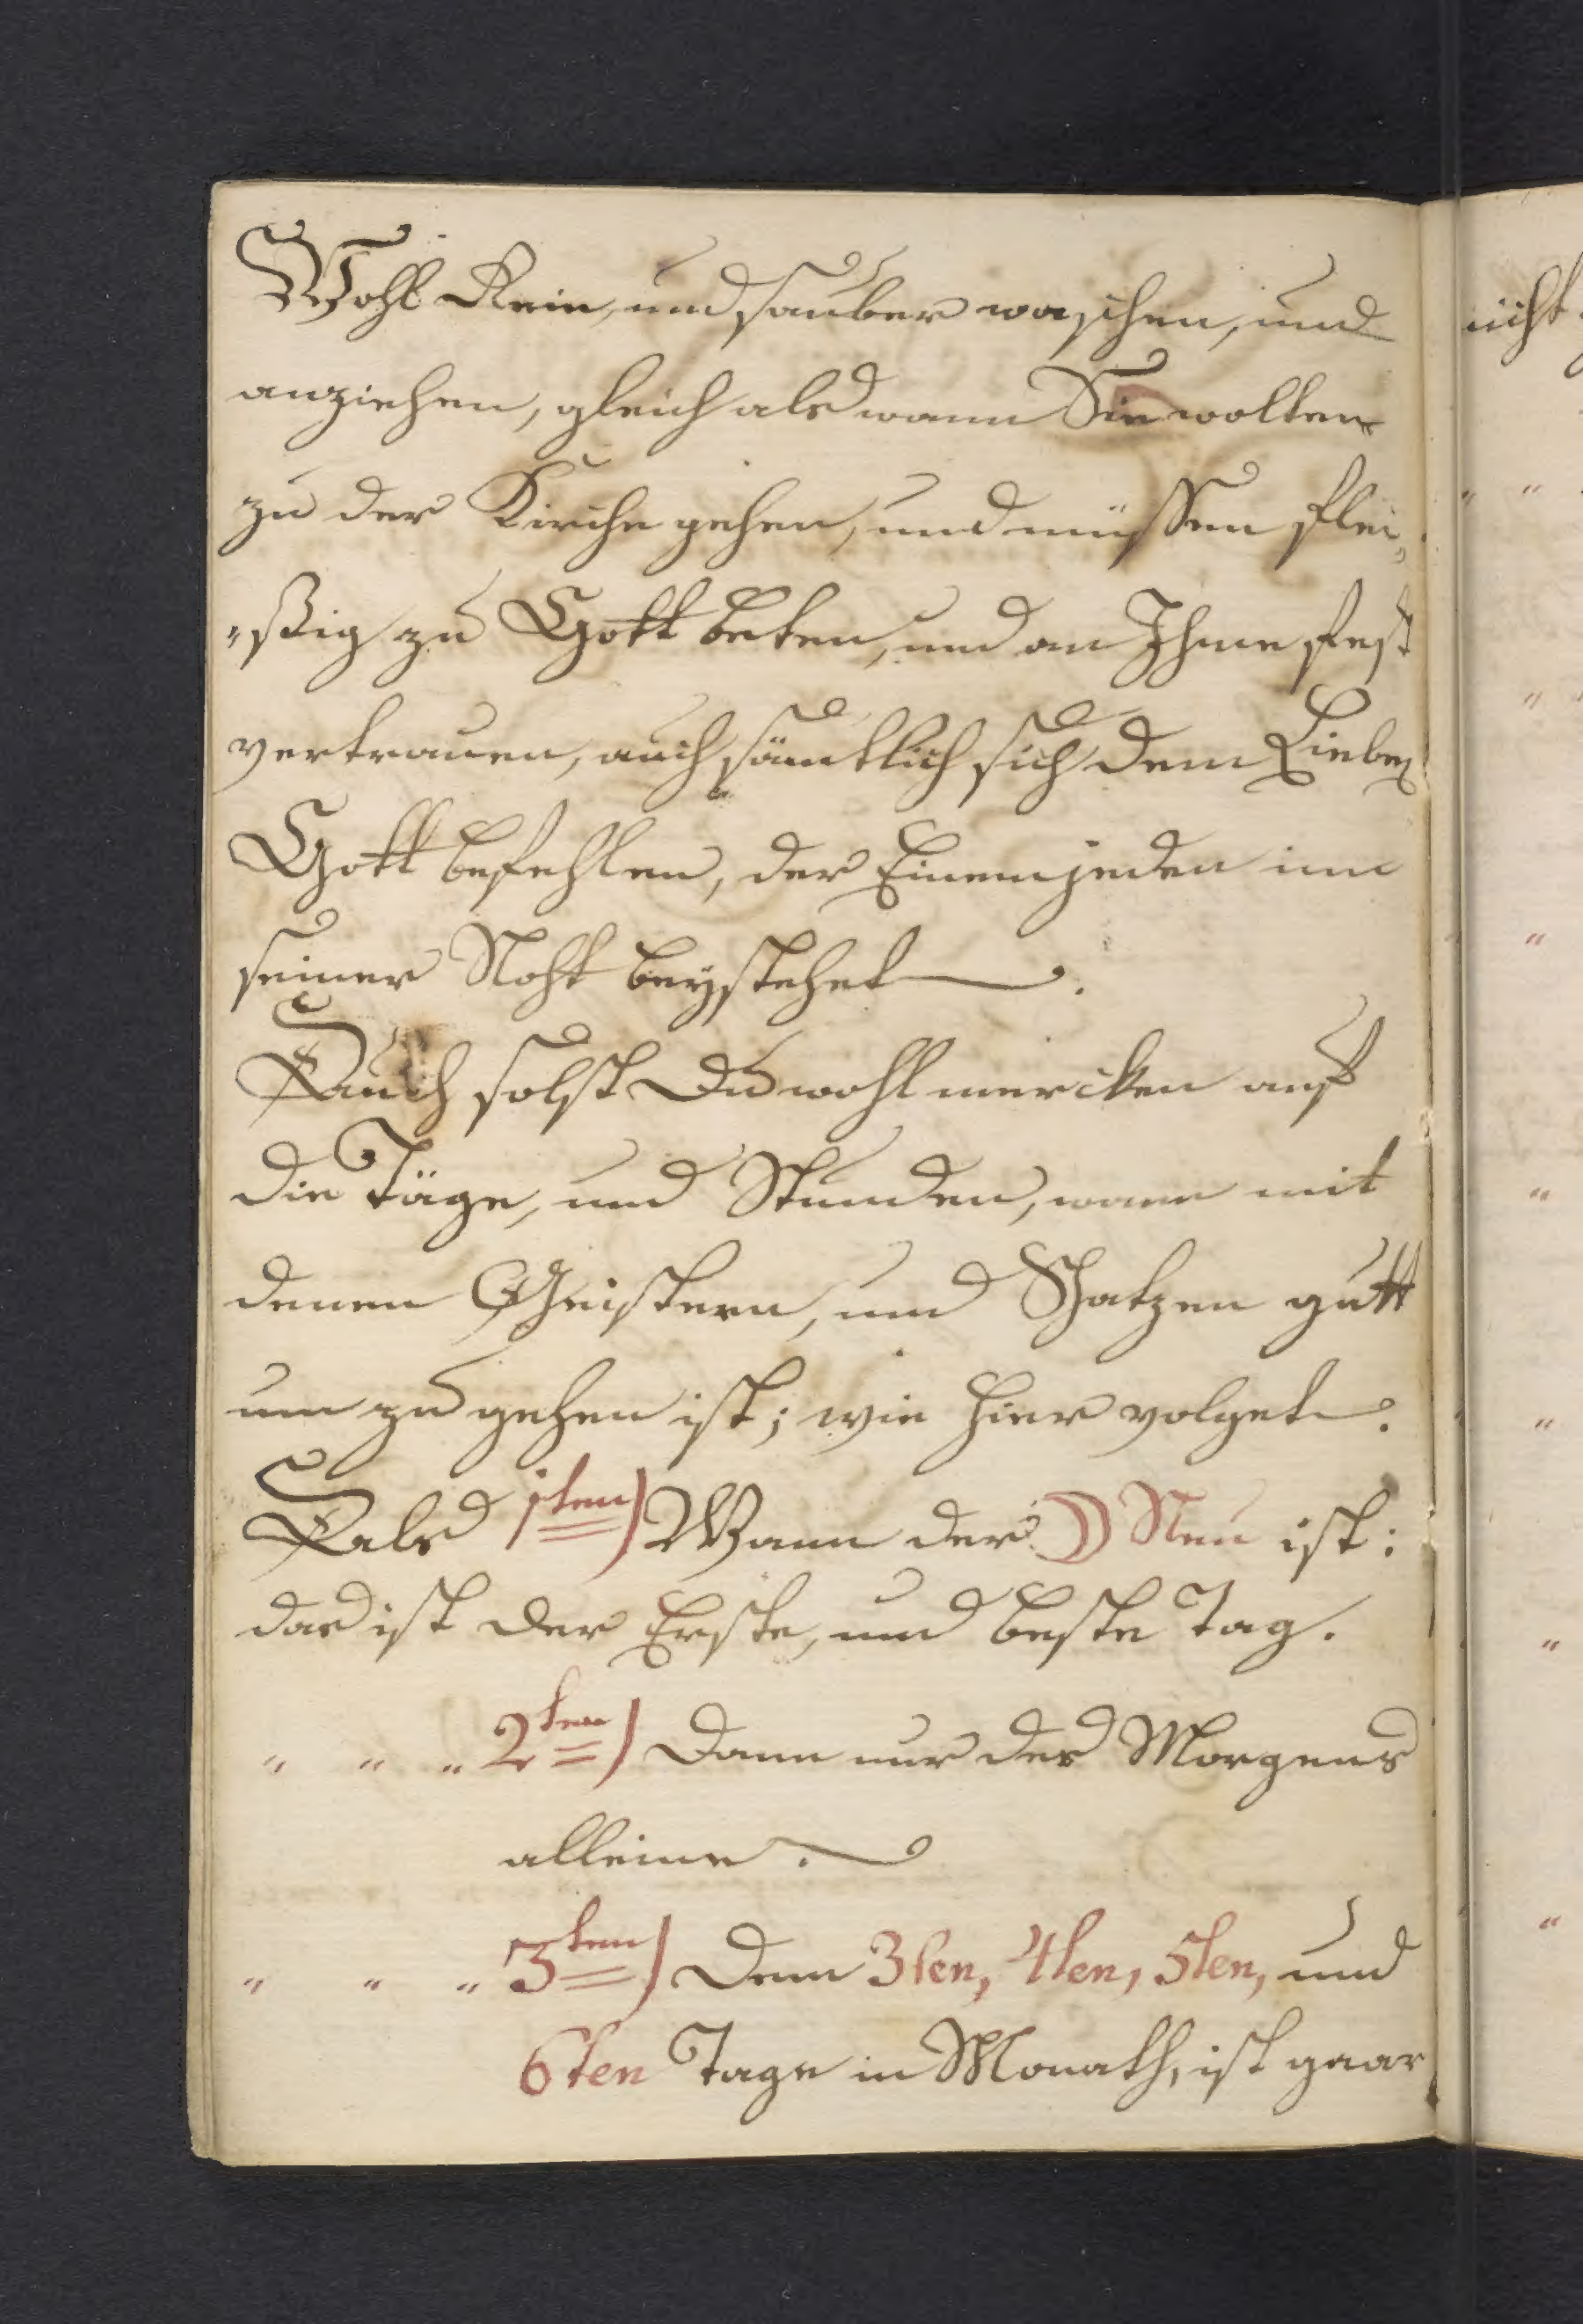 Wohl Rein, und sauber waschen, und
anziehen, gleich als wann Sie wolten
zu der Kirche gehen, und müssen flei„
„ßig zu Gott beten, und an Ihme fest
vertrauen, auch sämtlich sich dem Lieben
Gott befehlen, der Einem jeden inn
seiner Noht beystehet.
Auch solst Du wohl mercken auf
die Täge, und Stunden, wann mit
denen Geistern, und Schatzen gutt
um zu gehen ist; wie hier volget.
Als 1sten) Wann der ☽ Neu ist:
das ist der Erste, und beste Tag.
„ „ „ 2ten) Dann nur des Morgens
alleine.
„ „ „ 3ten) Denn 3ten, 4ten, 5ten, und
6ten Tage in Monath, ist gaar